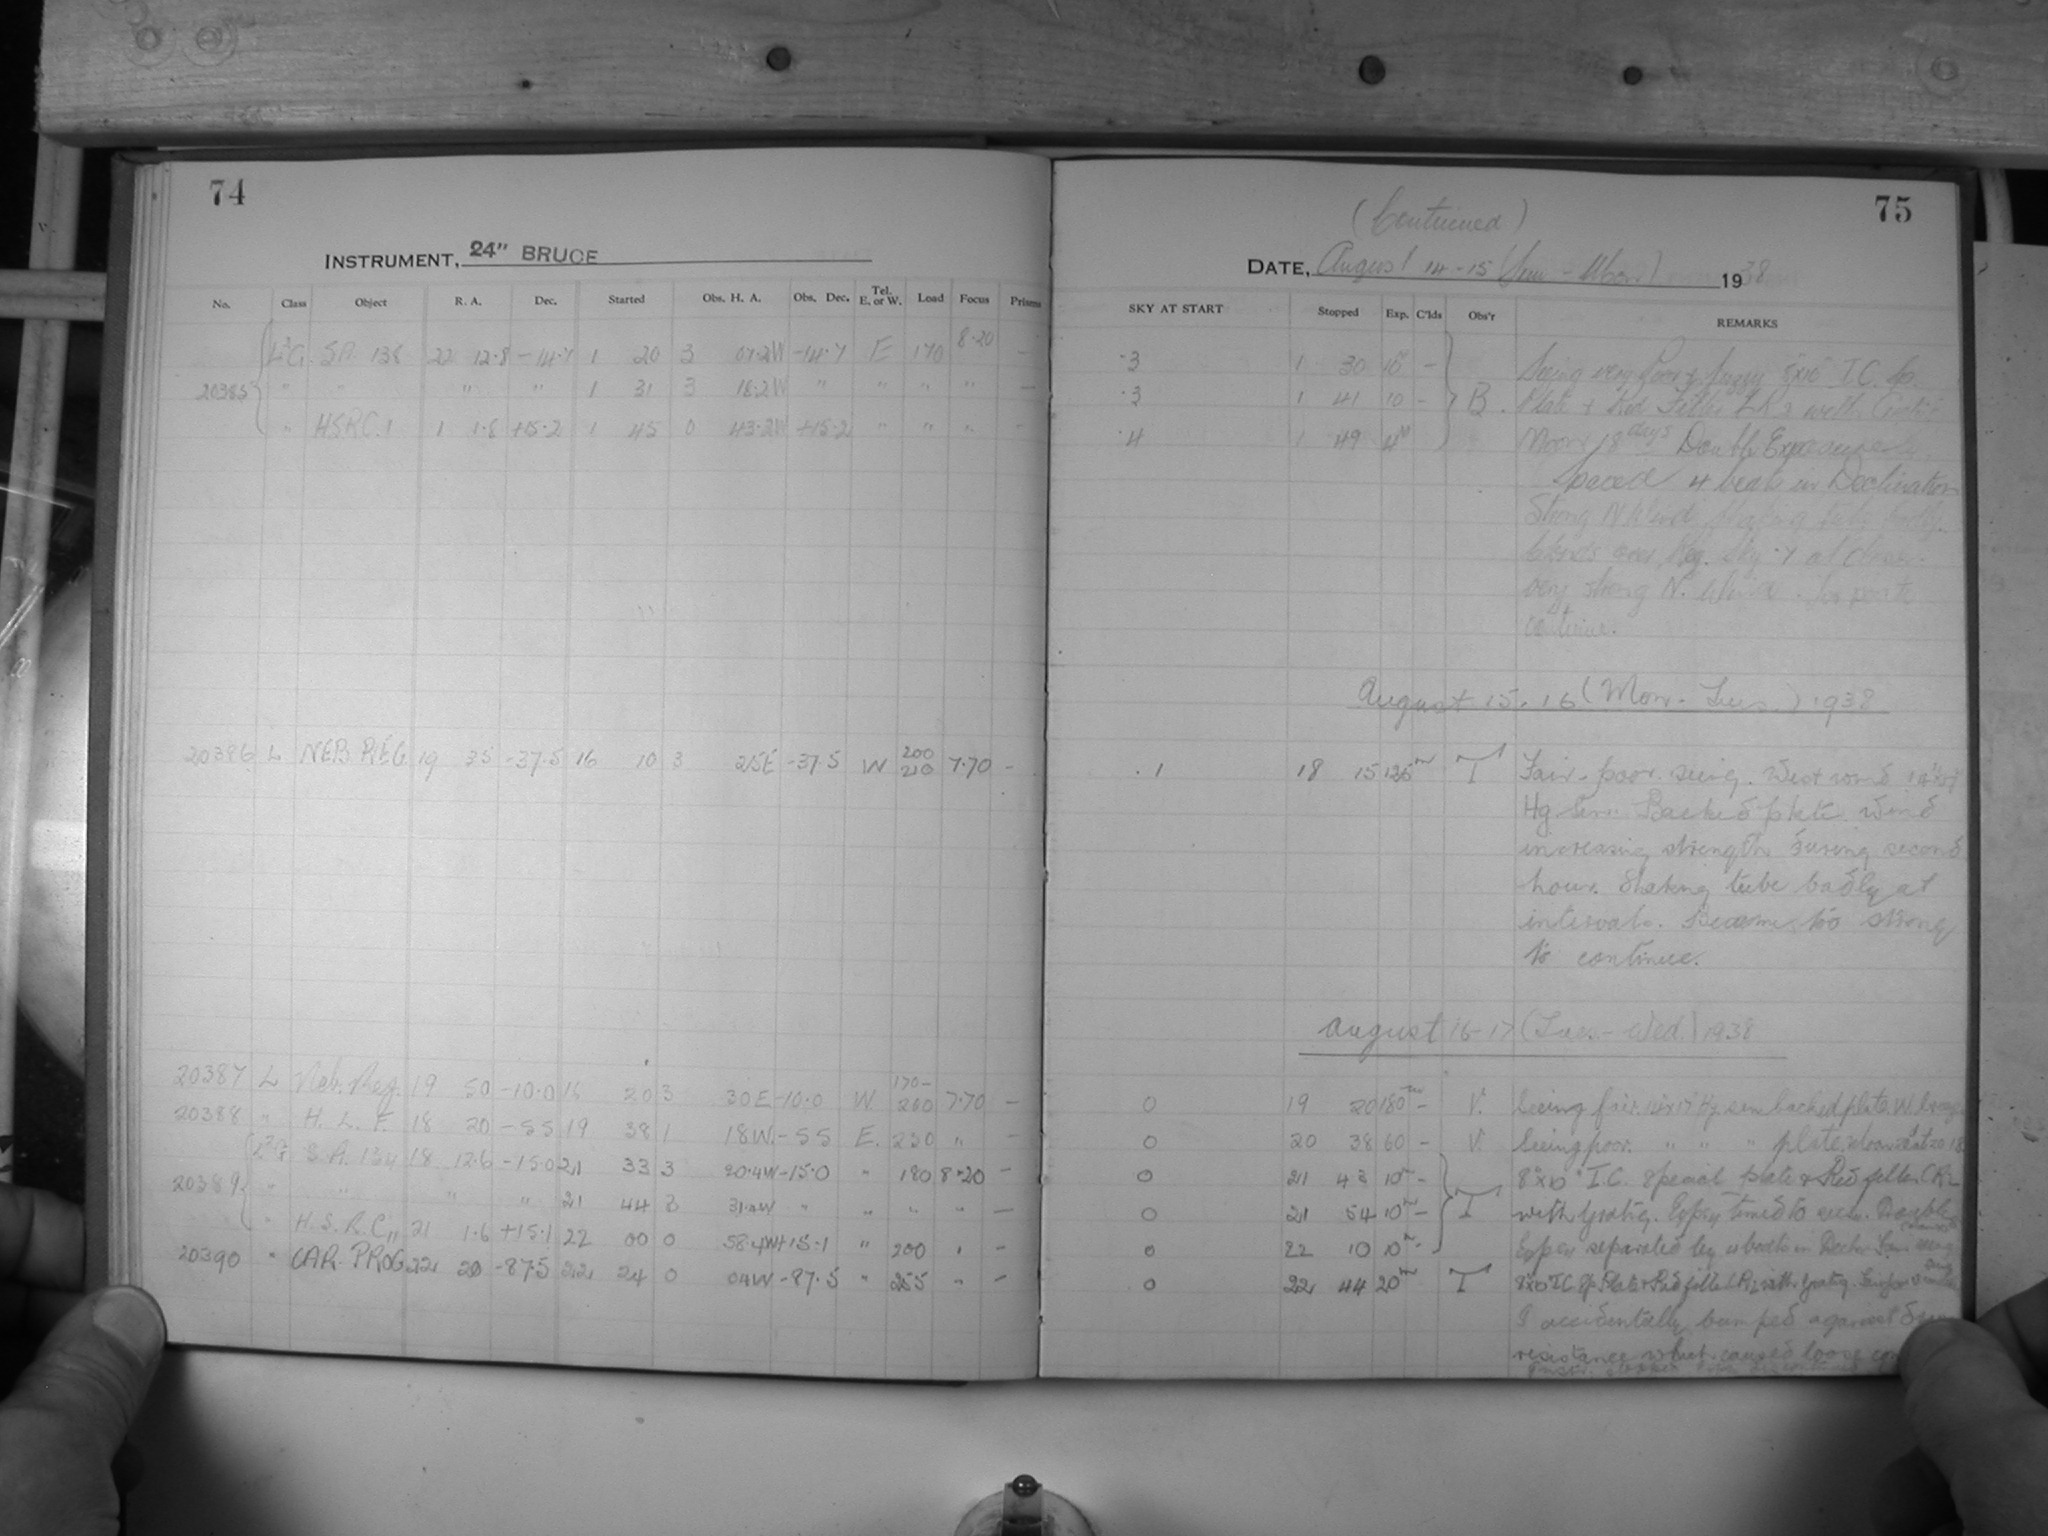 74
INSTRUMENT, 24" BRUCE
No. Class Object R. A. Dec. Started Obs. H. A. Obs. Dec. Tel. E. or W. Load Focus Prisms
L²G S.A. 138 22 12.8 -14.7 1 20 3 07.2W -14.7 E 170 8.20 -
20385 " " " " 1 31 3 18.2W " " " " -
" HSRC. 1 1 1.8 +15.2 1 45 0 43.2W +15.2 " " " -
20386 L NEB REG 19 35 -37.5 16 10 3 25E -37.5 W 200 210 7.70 -
20387 L Neb. Reg. 19 50 -10.0 16 20 3 30E -10.0 W 170- 260 7.70 -
20388 " H. L. F. 18 20 -55 19 38 1 18W -55 E. 230 " -
L²G S.A. 134 18 12.6 -15.0 21 33 3 20.4W -15.0 " 180 8.20 -
20389 " " " " 21 44 3 31.4W " " " " -
" H.S.R.C. 21 1.6 +15.1 22 00 0 58.4W +15.1 " 200 " -
20390 " CAR. PROG 22 20 -87.5 22 24 0 04W -87.5 " 255 " -
75
(Continued)
DATE, August 14-15 (Sun - Mon.) 1938
SKY AT START Stopped Exp. C'lds Obs'r REMARKS
.3 1 30 10m - Seeing very Poor & fuzzy 8x10 I.C. Sp.
.3 1 41 10 - B. Plate + Red Filter with
.4 1 49 4m Moon 18 days Double Exposures
Spaced 4 beats in Declination
Strong N. Wind shaking tube badly.
Clouds over Reg. Sky .7 at close.
very strong N. Wind.
continue.
August 15-16 (Mon.- Tues.) 1938
.1 18 15 125m T Fair - poor seeing. West wind 14x17
Hg Sen. Backed plate. Wind
increasing strength during second
hour. Shaking tube badly at
intervals. Became too strong
to continue.
August 16-17 (Tues.- Wed.) 1938
0 19 20 180m - V. Seeing fair. 14x17 Hg sen backed plate. W.
0 20 38 60 - V. Seeing poor. " " " plate. at 20 18
0 21 43 10m - 8"x10" I.C. Special plate & Red filter
0 21 54 10m - T with grating. Expos timed to Double
0 22 10 10m - Expos separated by 4 beats in Decln
0 22 44 20m T 8x10 I.C. Sp. Plate & Red filter with grating.
I accidentally bumped against
resistance which caused loose